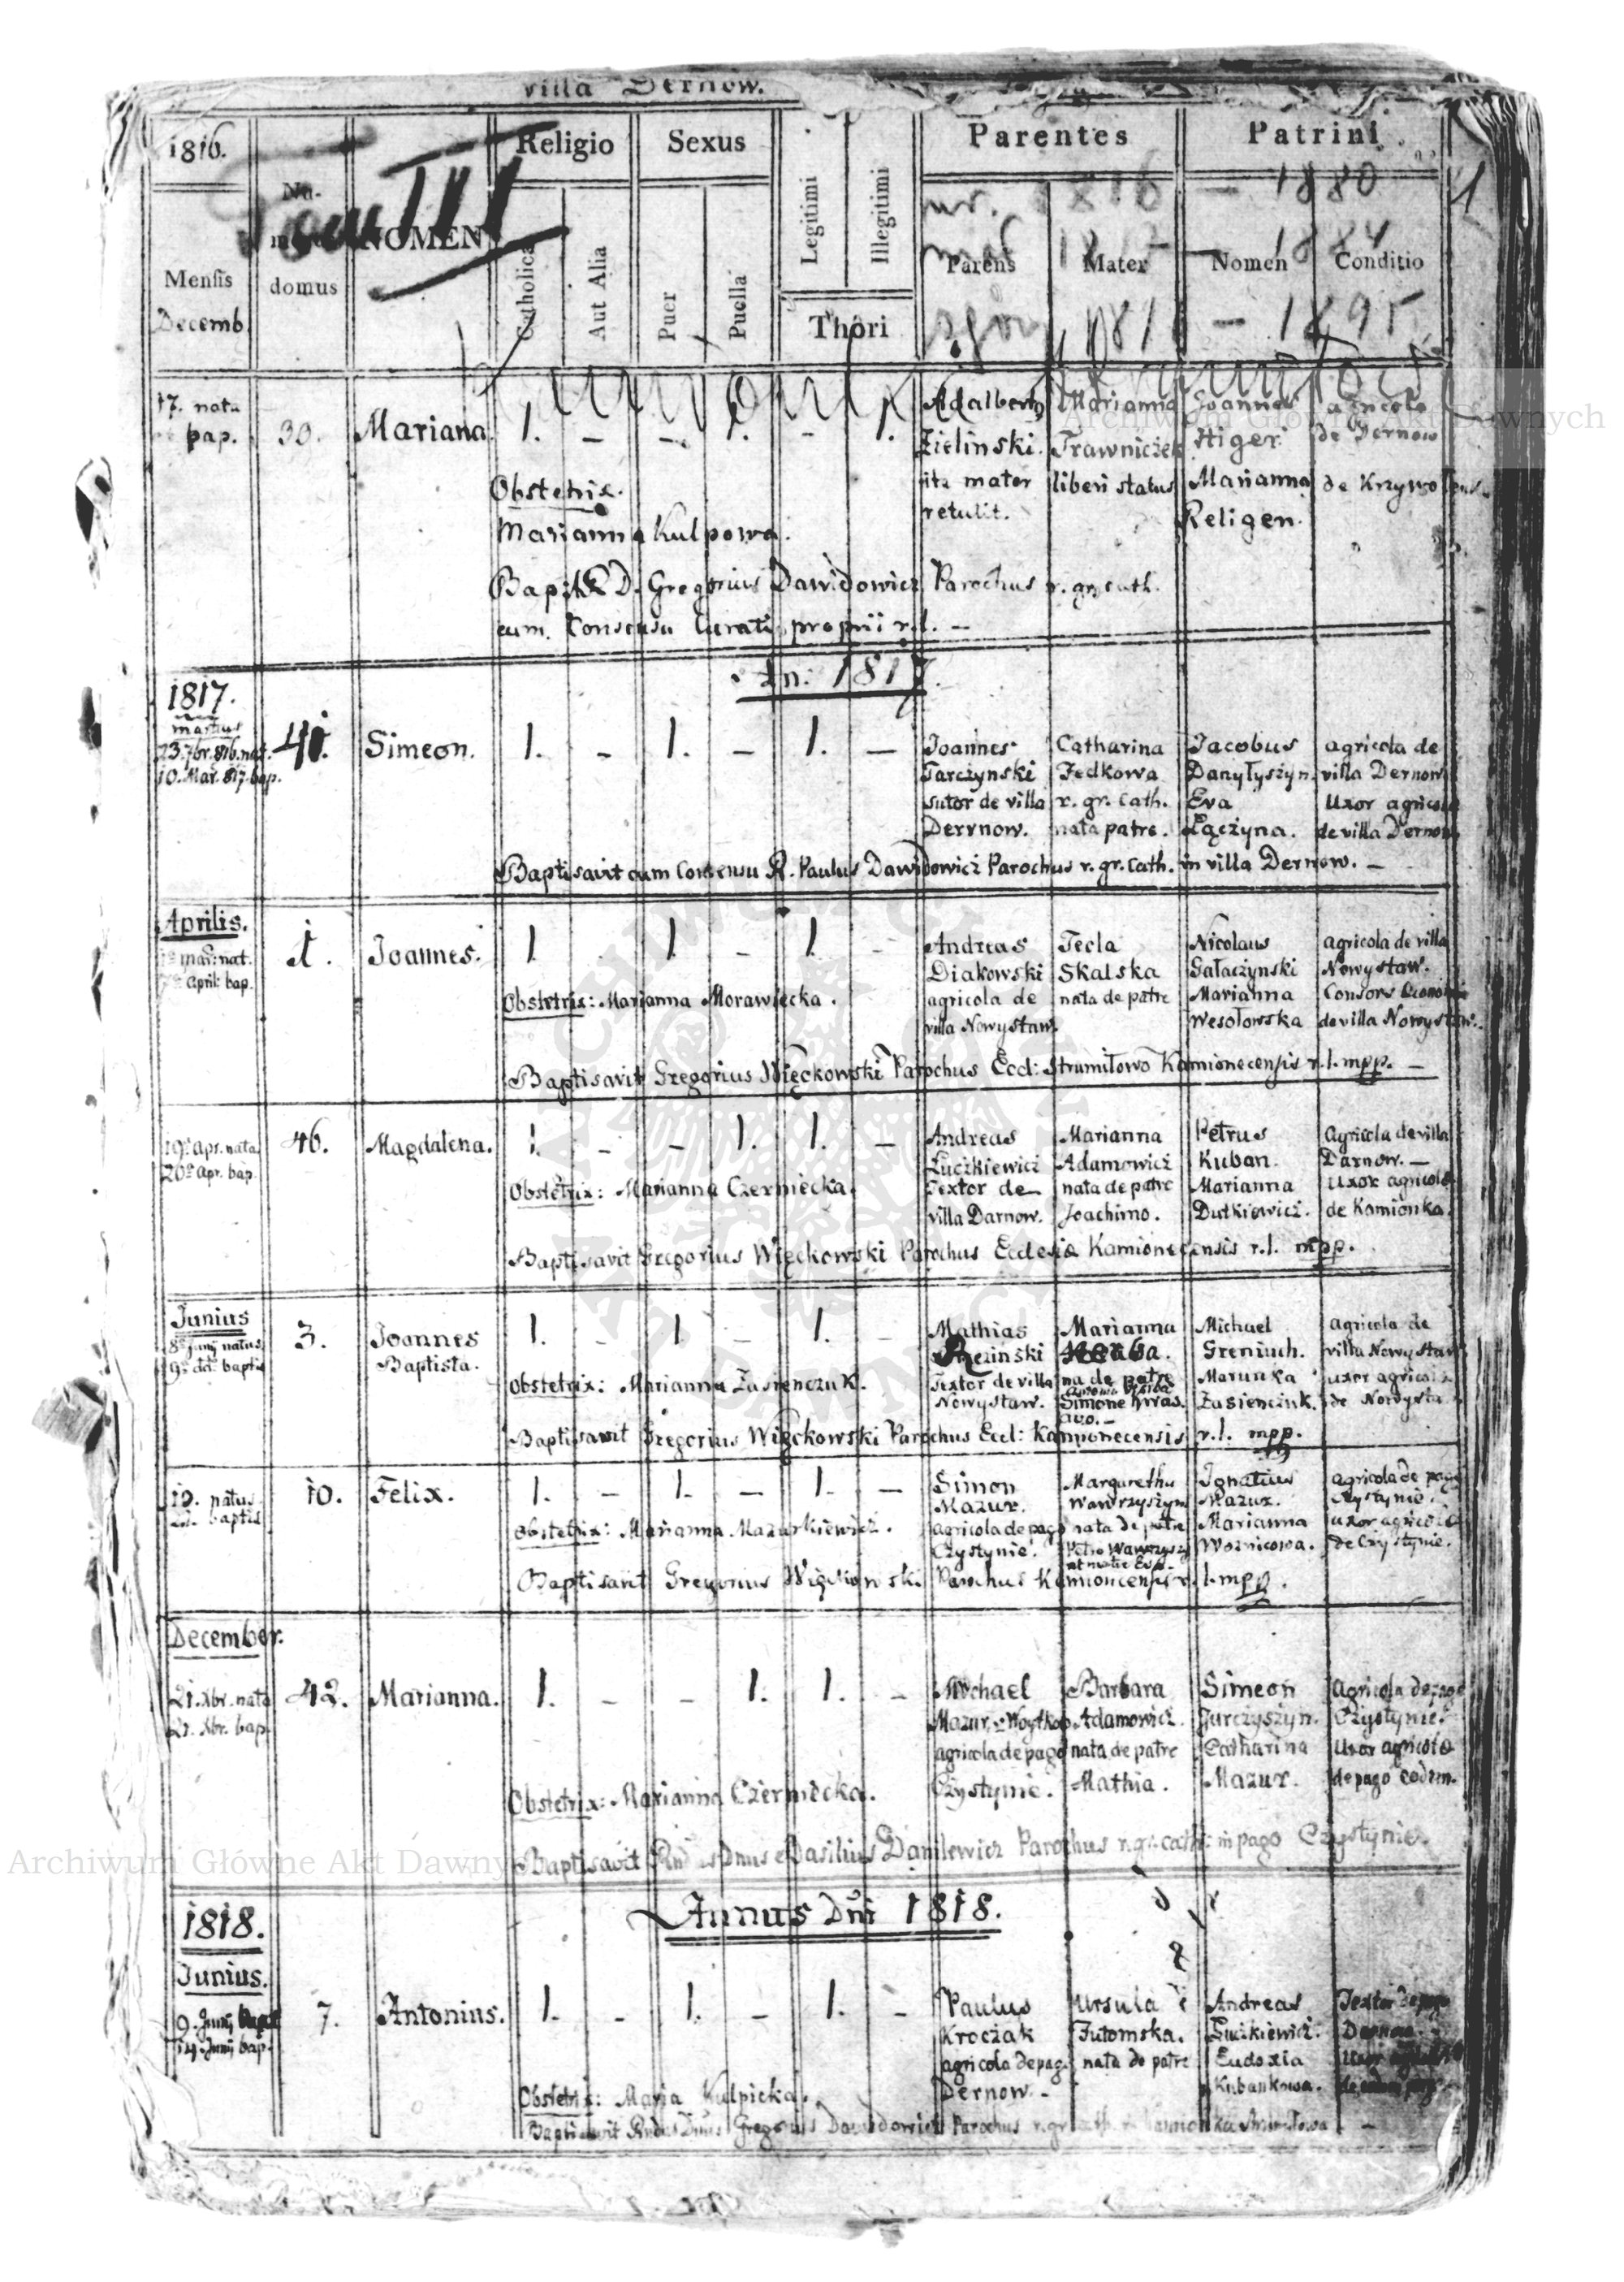 villa Dernow.
1816.
Religio
Sexus
Legitimi
Illegitimi
Parentes
Patrini
1
Tom III
Numerus
NOMEN
ur. 1816 — 1880
1884
Mensis
domus
Catholica
Aut Alia
Puer
Puella
Parens
Mater
Nomen
Conditio
Decemb.
Thori
1895
17. nata
bap.
30.
Mariana.
1. — — 1. — 1.
Adalbertz
Zielinski.
ita mater
retulit.
Marianna
Trawniczek
liberi status
Joannes
Higer
Marianna
Religen.
agricola
de Dernow
de Krzywo
Obstetrix.
Marianna Kulpowa.
D. Gregorius Dawidowicz Parochus r. gr. cath.
cum Consensu Curati proprii r. l. —
An: 1817.
1817.
martius
23. 7br. 816. nat.
10. Mar. 817. bap.
41.
Simeon.
1. — 1. — 1. —
Joannes
Tarczynski
sutor de villa
Derrnow.
Catharina
Fedkowa
r. gr. cath.
nata patre.
Jacobus
Danyłyszyn.
Eva
Łączyna.
agricola de
villa Dernow
Uxor agricola
de villa Dernow
Baptisavit cum Consensu R. Paulus Dawidowicz Parochus r. gr. cath. in villa Dernow. —
Aprilis.
mar: nat.
April: bap.
1.
Joannes.
1. 1. 1. —
Andreas
Diakowski
agricola de
villa Nowystaw.
Tecla
Skalska
nata de patre
Nicolaus
Gałaczynski
Marianna
Wesołowska
agricola de villa
Nowystaw.
Consors
de villa Nowystaw.
Obstetrix: Marianna Morawiecka.
Baptisavit Gregorius Więckowski Parochus Eccl: Strumiłowo Kamionecensis r. l. mpp. —
19a Apr. nata
20a Apr. bap.
46.
Magdalena.
1. — — 1. 1. —
Andreas
Łuczkiewicz
Textor de
villa Darnow.
Marianna
Adamowicz
nata de patre
Joachimo.
Petrus
Kuban.
Marianna
Dutkiewicz.
Agricola de villa
Darnow. —
Uxor agricola
de Kamionka.
Obstetrix: Marianna Czerniecka.
Baptisavit Gregorius Więckowski Parochus Ecclesia Kamionecensis r. l. mpp.
Junius
8a Junij natus
9a dtt baptis
3.
Joannes
Baptista.
1. — 1 — 1. —
Mathias
Rezinski
Textor de villa
Nowystaw.
Marianna
na de patre
Simone Kwas.
avo. —
Michael
Greniuch.
Marunka
Zasienczuk.
agricola de
villa Nowystaw
uxor agricola
de Nowysta
Obstetrix: Marianna Zasienczuk.
Baptisavit Gregorius Więckowski Parochus Eccl: Kamionecensis r. l. mpp.
19. natus
baptis
10.
Felix.
1. — 1. — 1. —
Simon
Mazur.
agricola de pago
Czystynie.
Margaretha
Wawrzyszyn
nata de patre
Petro Wawrzysz
et matre Eva.
Ignatius
Mazur.
Marianna
Woznicowa.
agricola de pago
Czystynie.
uxor agricola
de Czystynie.
Obstetrix: Marianna Mazurkiewicz.
Baptisavit Gregorius Więckowski Parochus Kamioncensis r. l. mpp.
December.
21. Xbr. nata
21. Xbr. bap.
42.
Marianna.
1. — — 1. 1. —
Michael
Mazur v. Woytkop
agricola de pago
Czystynie.
Barbara
Adamowicz.
nata de patre
Mathia.
Simeon
Jurczyszyn.
Catharina
Mazur.
Agricola de pago
Czystynie.
Uxor agricola
de pago eodem.
Obstetrix: Marianna Czerniecka.
Baptisavit Dnus Basilius Danilewicz Parochus r. gr. cath: in pago Czystynie.
1818.
Annus Dni 1818.
Junius.
9. Junij
14. Junij bap.
7.
Antonius.
1. — 1. — 1. —
Paulus
Kroczak
agricola de pag.
Dernow. —
Ursula
Jutomska.
nata de patre
Andreas
Łuczkiewicz.
Eudoxia
Kubankowa.
Textor de pago
Dernow.
Obstetrix: Maria Kulpicka.
Baptisavit Rndus Dnus Gregorius Dawidowicz Parochus r. gr
Archiwum Główne Akt Dawnych
Archiwum Główne Akt Dawnych
ARCHIWUM GŁÓWNE AKT DAWNYCH